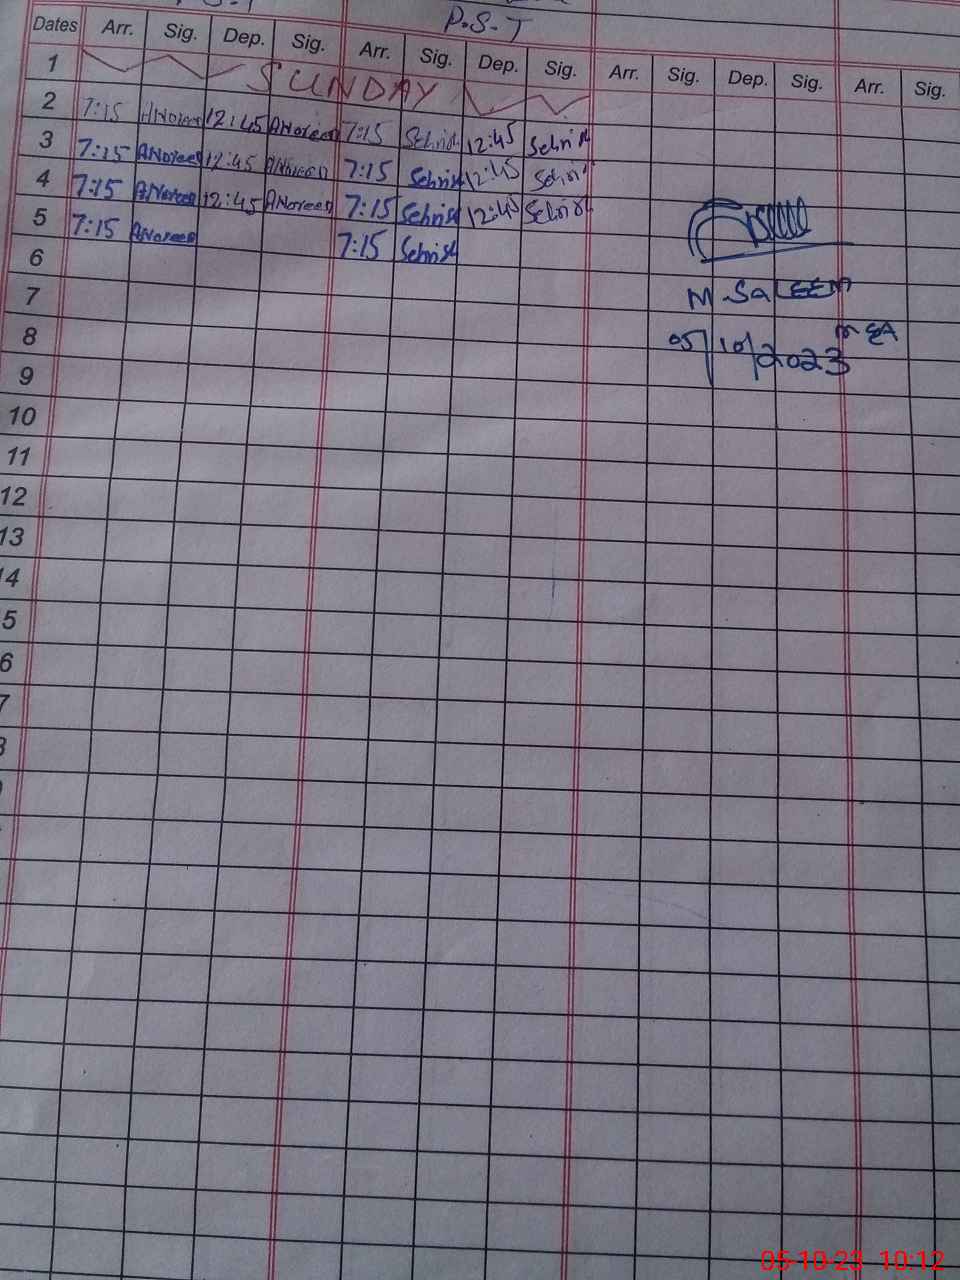 P.S.T P.S.T
Dates Arr. Sig. Dep. Sig. Arr. Sig. Dep. Sig. Arr. Sig. Dep. Sig. Arr. Sig.
1 SUNDAY
2 7:15 ANoreen 12:45 ANoreen 7:15 Sehrish 12:45 Sehrish
3 7:15 ANoreen 12:45 ANoreen 7:15 Sehrish 12:45 Sehrish
4 7:15 ANoreen 12:45 ANoreen 7:15 Sehrish 12:45 Sehrish
5 7:15 ANoreen 7:15 Sehrish
6
7 M SaLEEM
8 MEA
05/10/2023
9
10
11
12
13
14
5
6
7
8
05-10-23 10:12